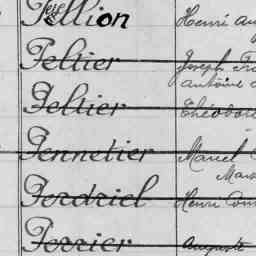 Pellion Henri
Peltier Joseph
Antoine
Peltier Théodore
Pennetier Marcel
Perdriel Henri
Perrier Auguste